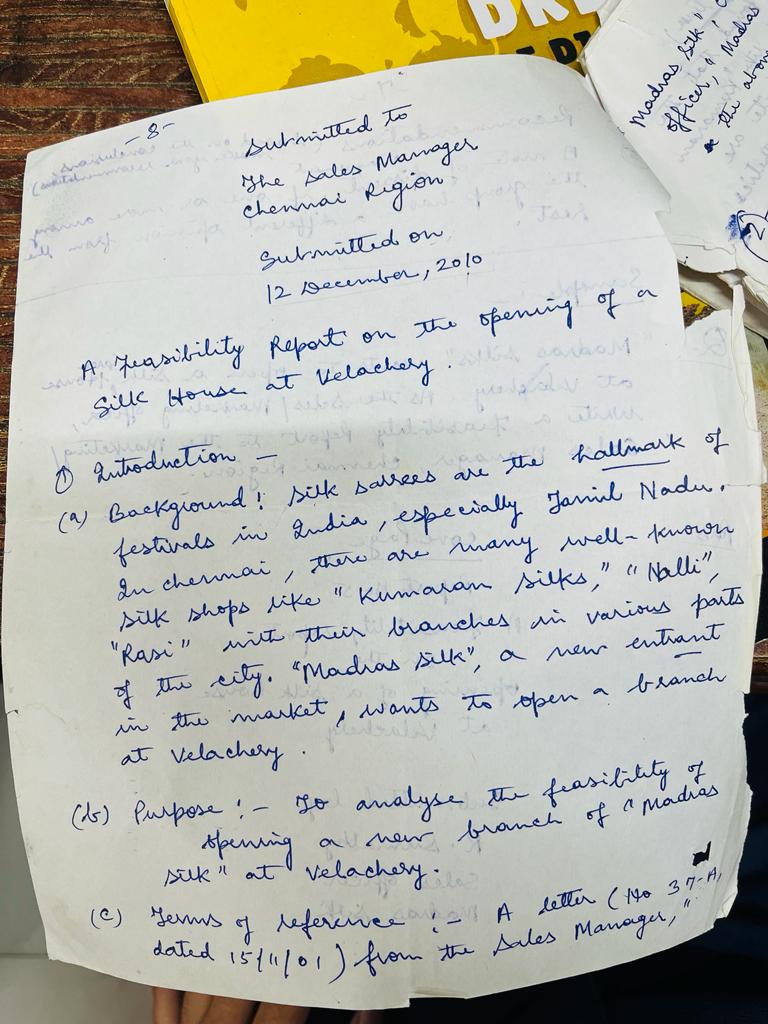 -8-
Submitted to
The Sales Manager
Chennai Region
Submitted on
12 December, 2010
A Feasibility Report on the opening of a
Silk House at Velachery.
① Introduction -
(a) Background: Silk sarees are the hallmark of
festivals in India, especially Tamil Nadu.
In chennai, there are many well-known
silk shops like "Kumaran Silks," "Nalli",
"Rasi" with their branches in various parts
of the city. "Madras Silk", a new entrant
in the market, wants to open a branch
at Velachery.
(b) Purpose :- To analyse the feasibility of
opening a new branch of "Madras
Silk" at Velachery.
(c) Terms of reference :- A letter (No 37-A,
dated 15/11/01) from the Sales Manager,"
Madras Silk"
officer, "Madras
the above